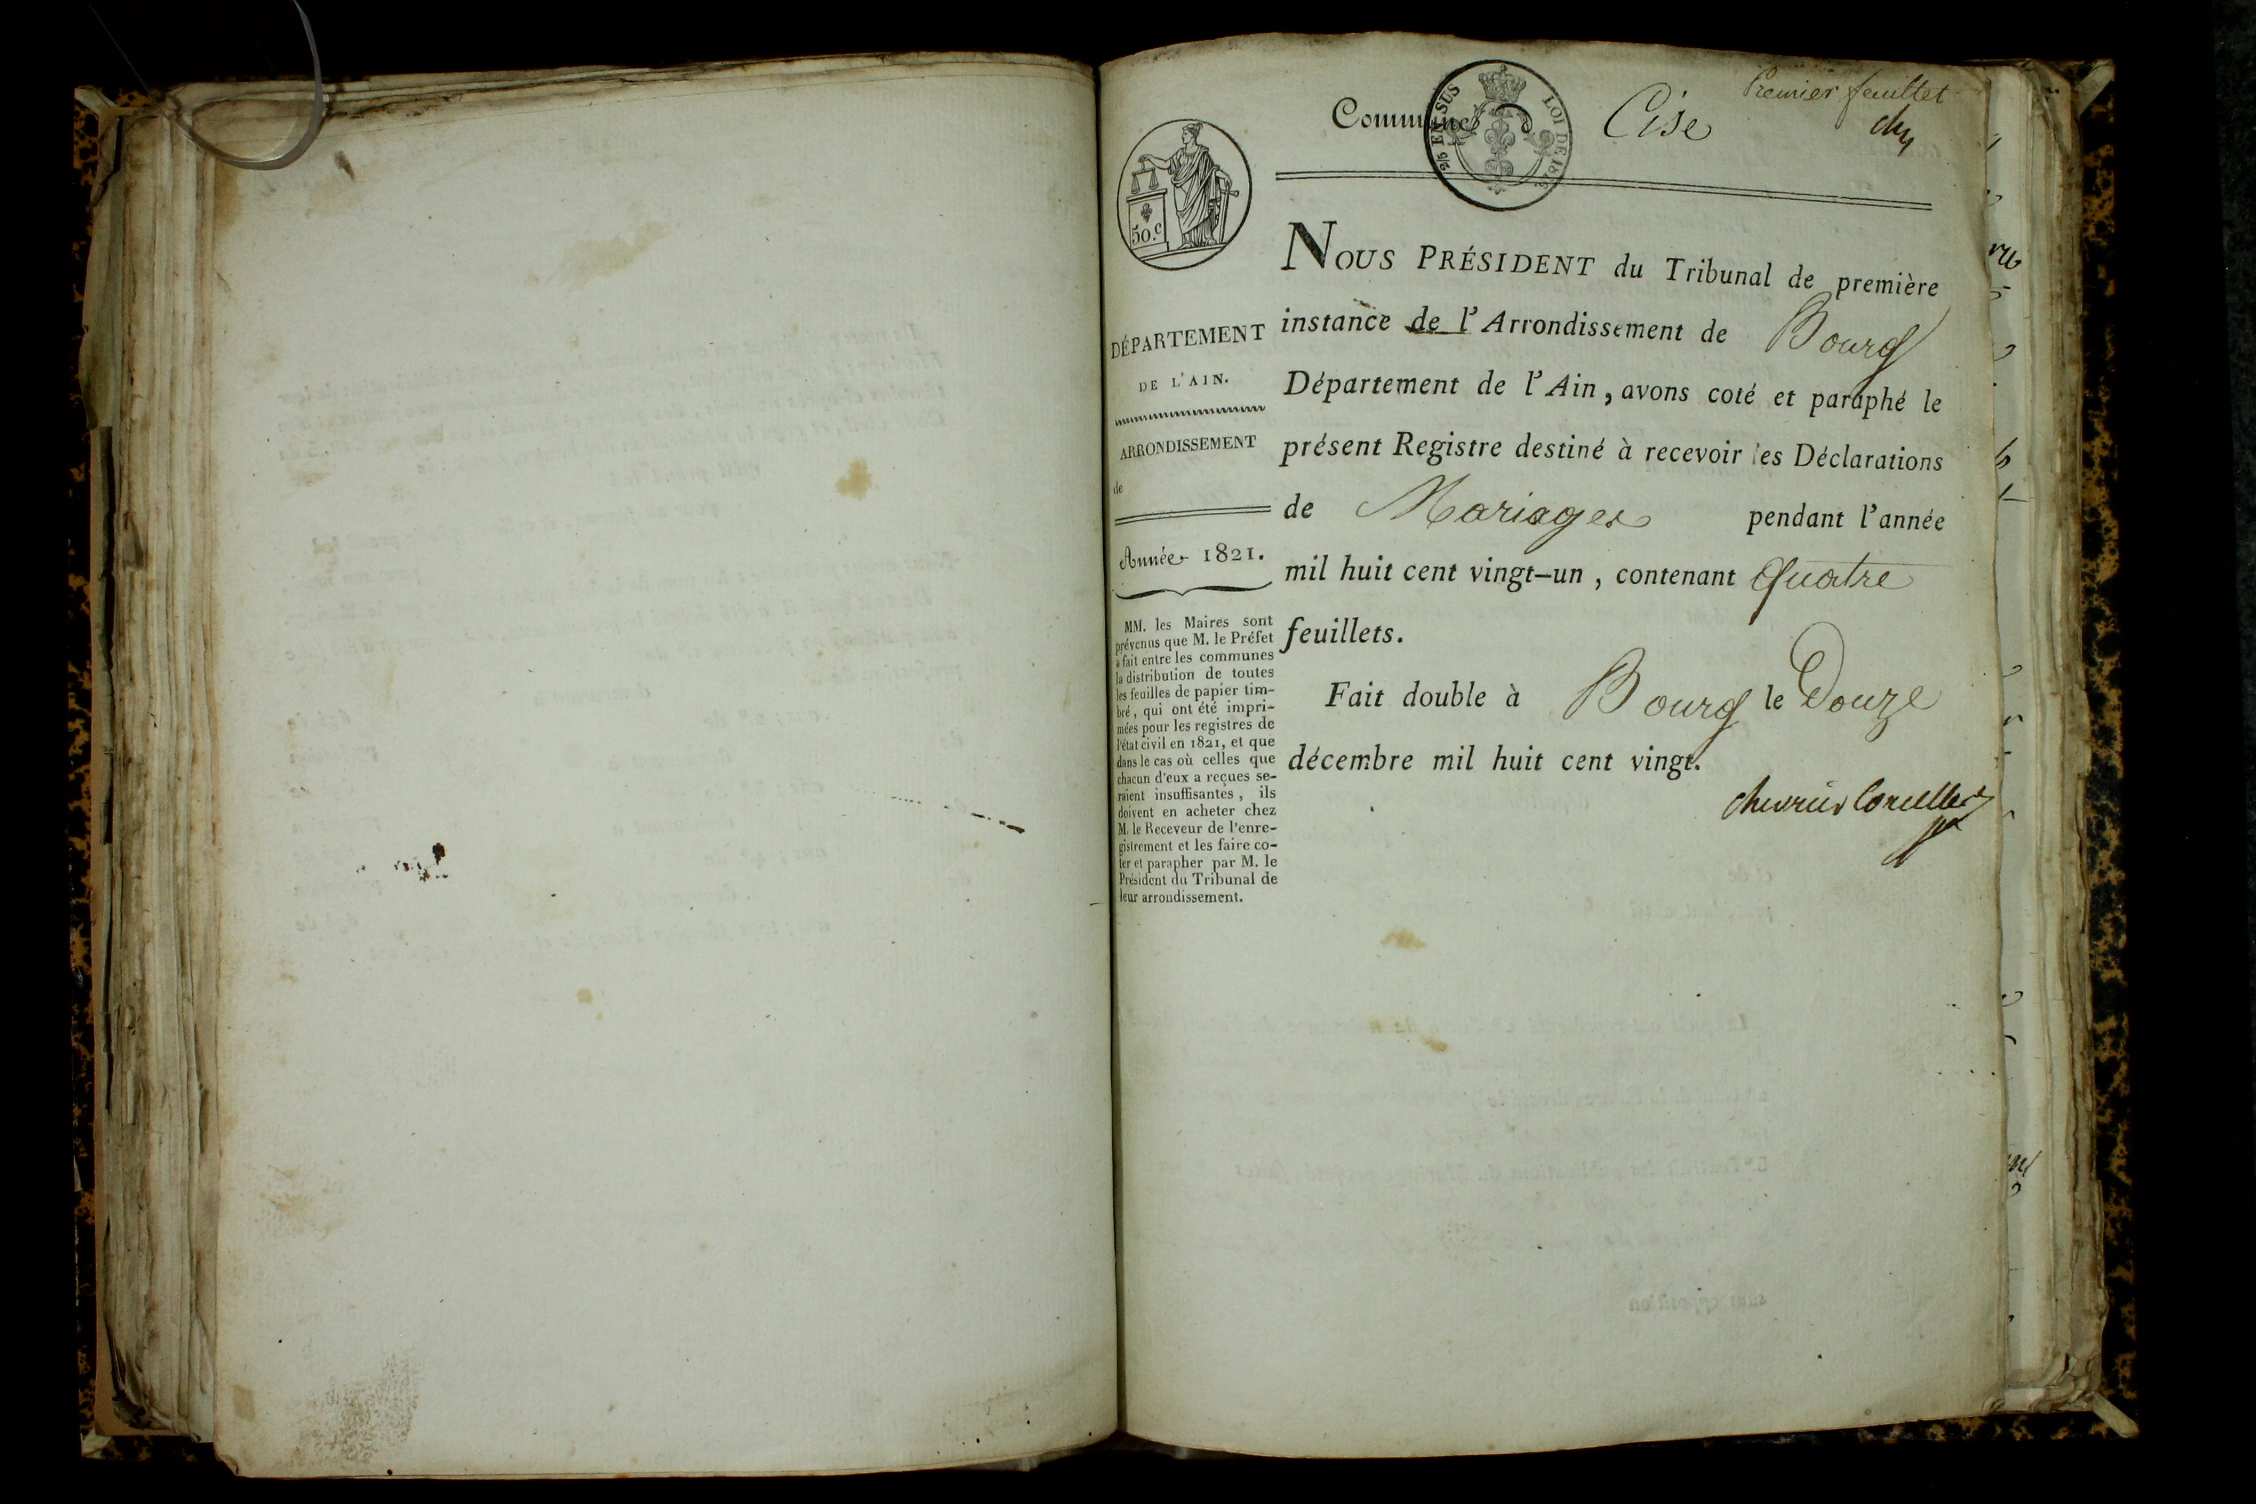 Premier feuillet
Commune d Cise
2/5 EN SUS LOI DE 1816
50.c
NOUS PRÉSIDENT du Tribunal de première
instance de l'Arrondissement de Bourg
Département de l'Ain, avons coté et paraphé le
présent Registre destiné à recevoir les Déclarations
de Mariages pendant l'année
mil huit cent vingt-un, contenant Quatre
feuillets.
Fait double à Bourg le Douze
décembre mil huit cent vingt.
DÉPARTEMENT
DE L'AIN.
ARRONDISSEMENT
de
Année 1821.
MM. les Maires sont
prévenus que M. le Préfet
a fait entre les communes
la distribution de toutes
les feuilles de papier tim-
bré, qui ont été impri-
mées pour les registres de
l'état civil en 1821, et que
dans le cas où celles que
chacun d'eux a reçues se-
raient insuffisantes, ils
doivent en acheter chez
M. le Receveur de l'enre-
gistrement et les faire co-
ter et parapher par M. le
Président du Tribunal de
leur arrondissement.